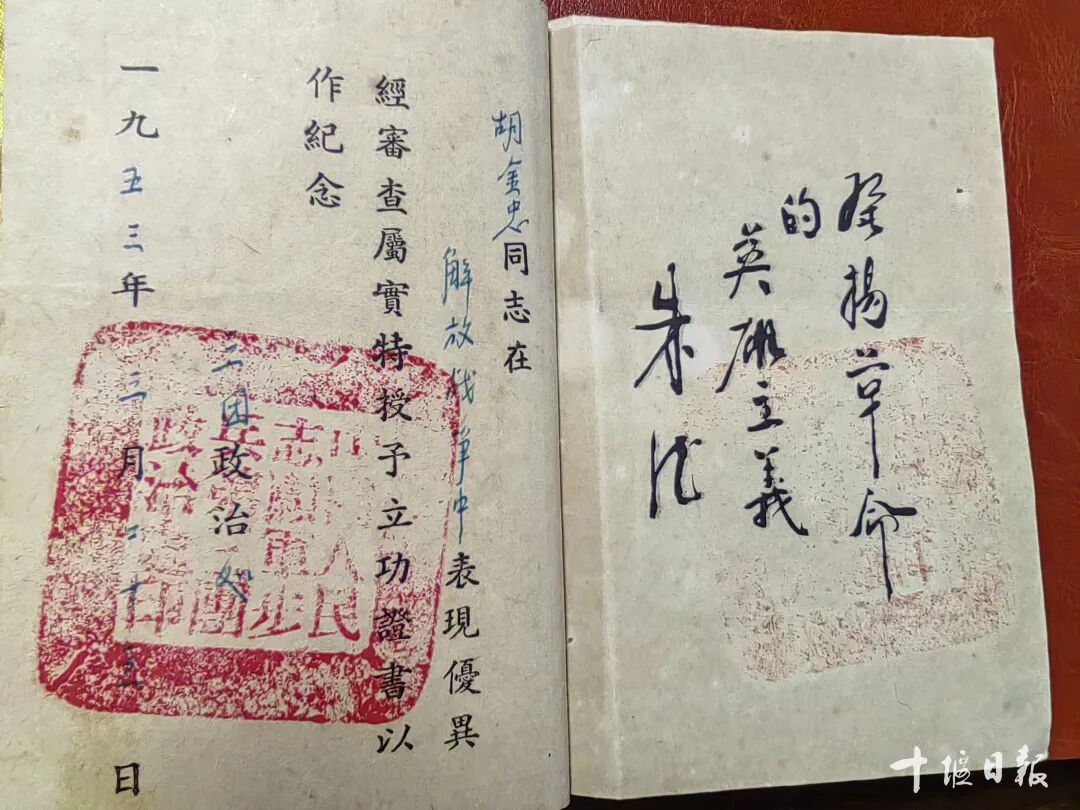 發揚革命
的
英雄主義
朱德
胡金忠同志在
解放战争中表現優異
經審查屬實特授予立功證書以
作紀念
团政治处
一九五三年三月二十日
十堰日报